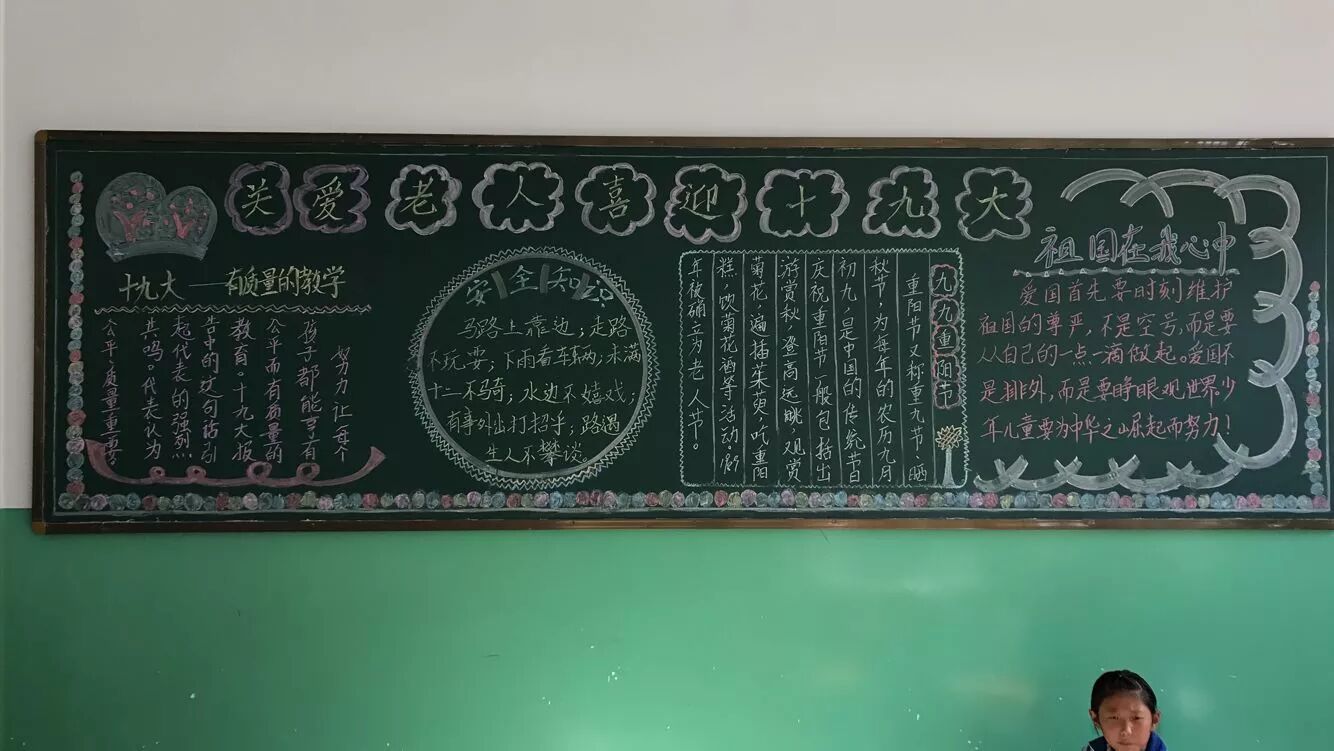 关爱老人喜迎十九大
十九大——有质量的教学
努力让每个
孩子都能享有
公平而有质量的
教育。十九大报
告中的这句话引
起代表的强烈
共鸣。代表认为
公平、质量重要。
安全知识
马路上靠边；走路
不玩耍；下雨看车辆，未满
十二不骑，水边不嬉戏；
有事外出打招乎；路遇
生人不攀谈。
九九重阳节
重阳节又称重九节、晒
秋节，为每年的农历九月
初九，是中国的传统节日
庆祝重阳节一般包括出
游赏秋，登高远眺、观赏
菊花、遍插茱萸、吃重阳
糕，饮菊花酒等活动，
年被确立为老人节。
祖国在我心中
爱国首先要时刻维护
祖国的尊严，不是空号，而是要
从自己的一点一滴做起。爱国不
是排外，而是要睁眼观世界。少
年儿童要为中华之崛起而努力！